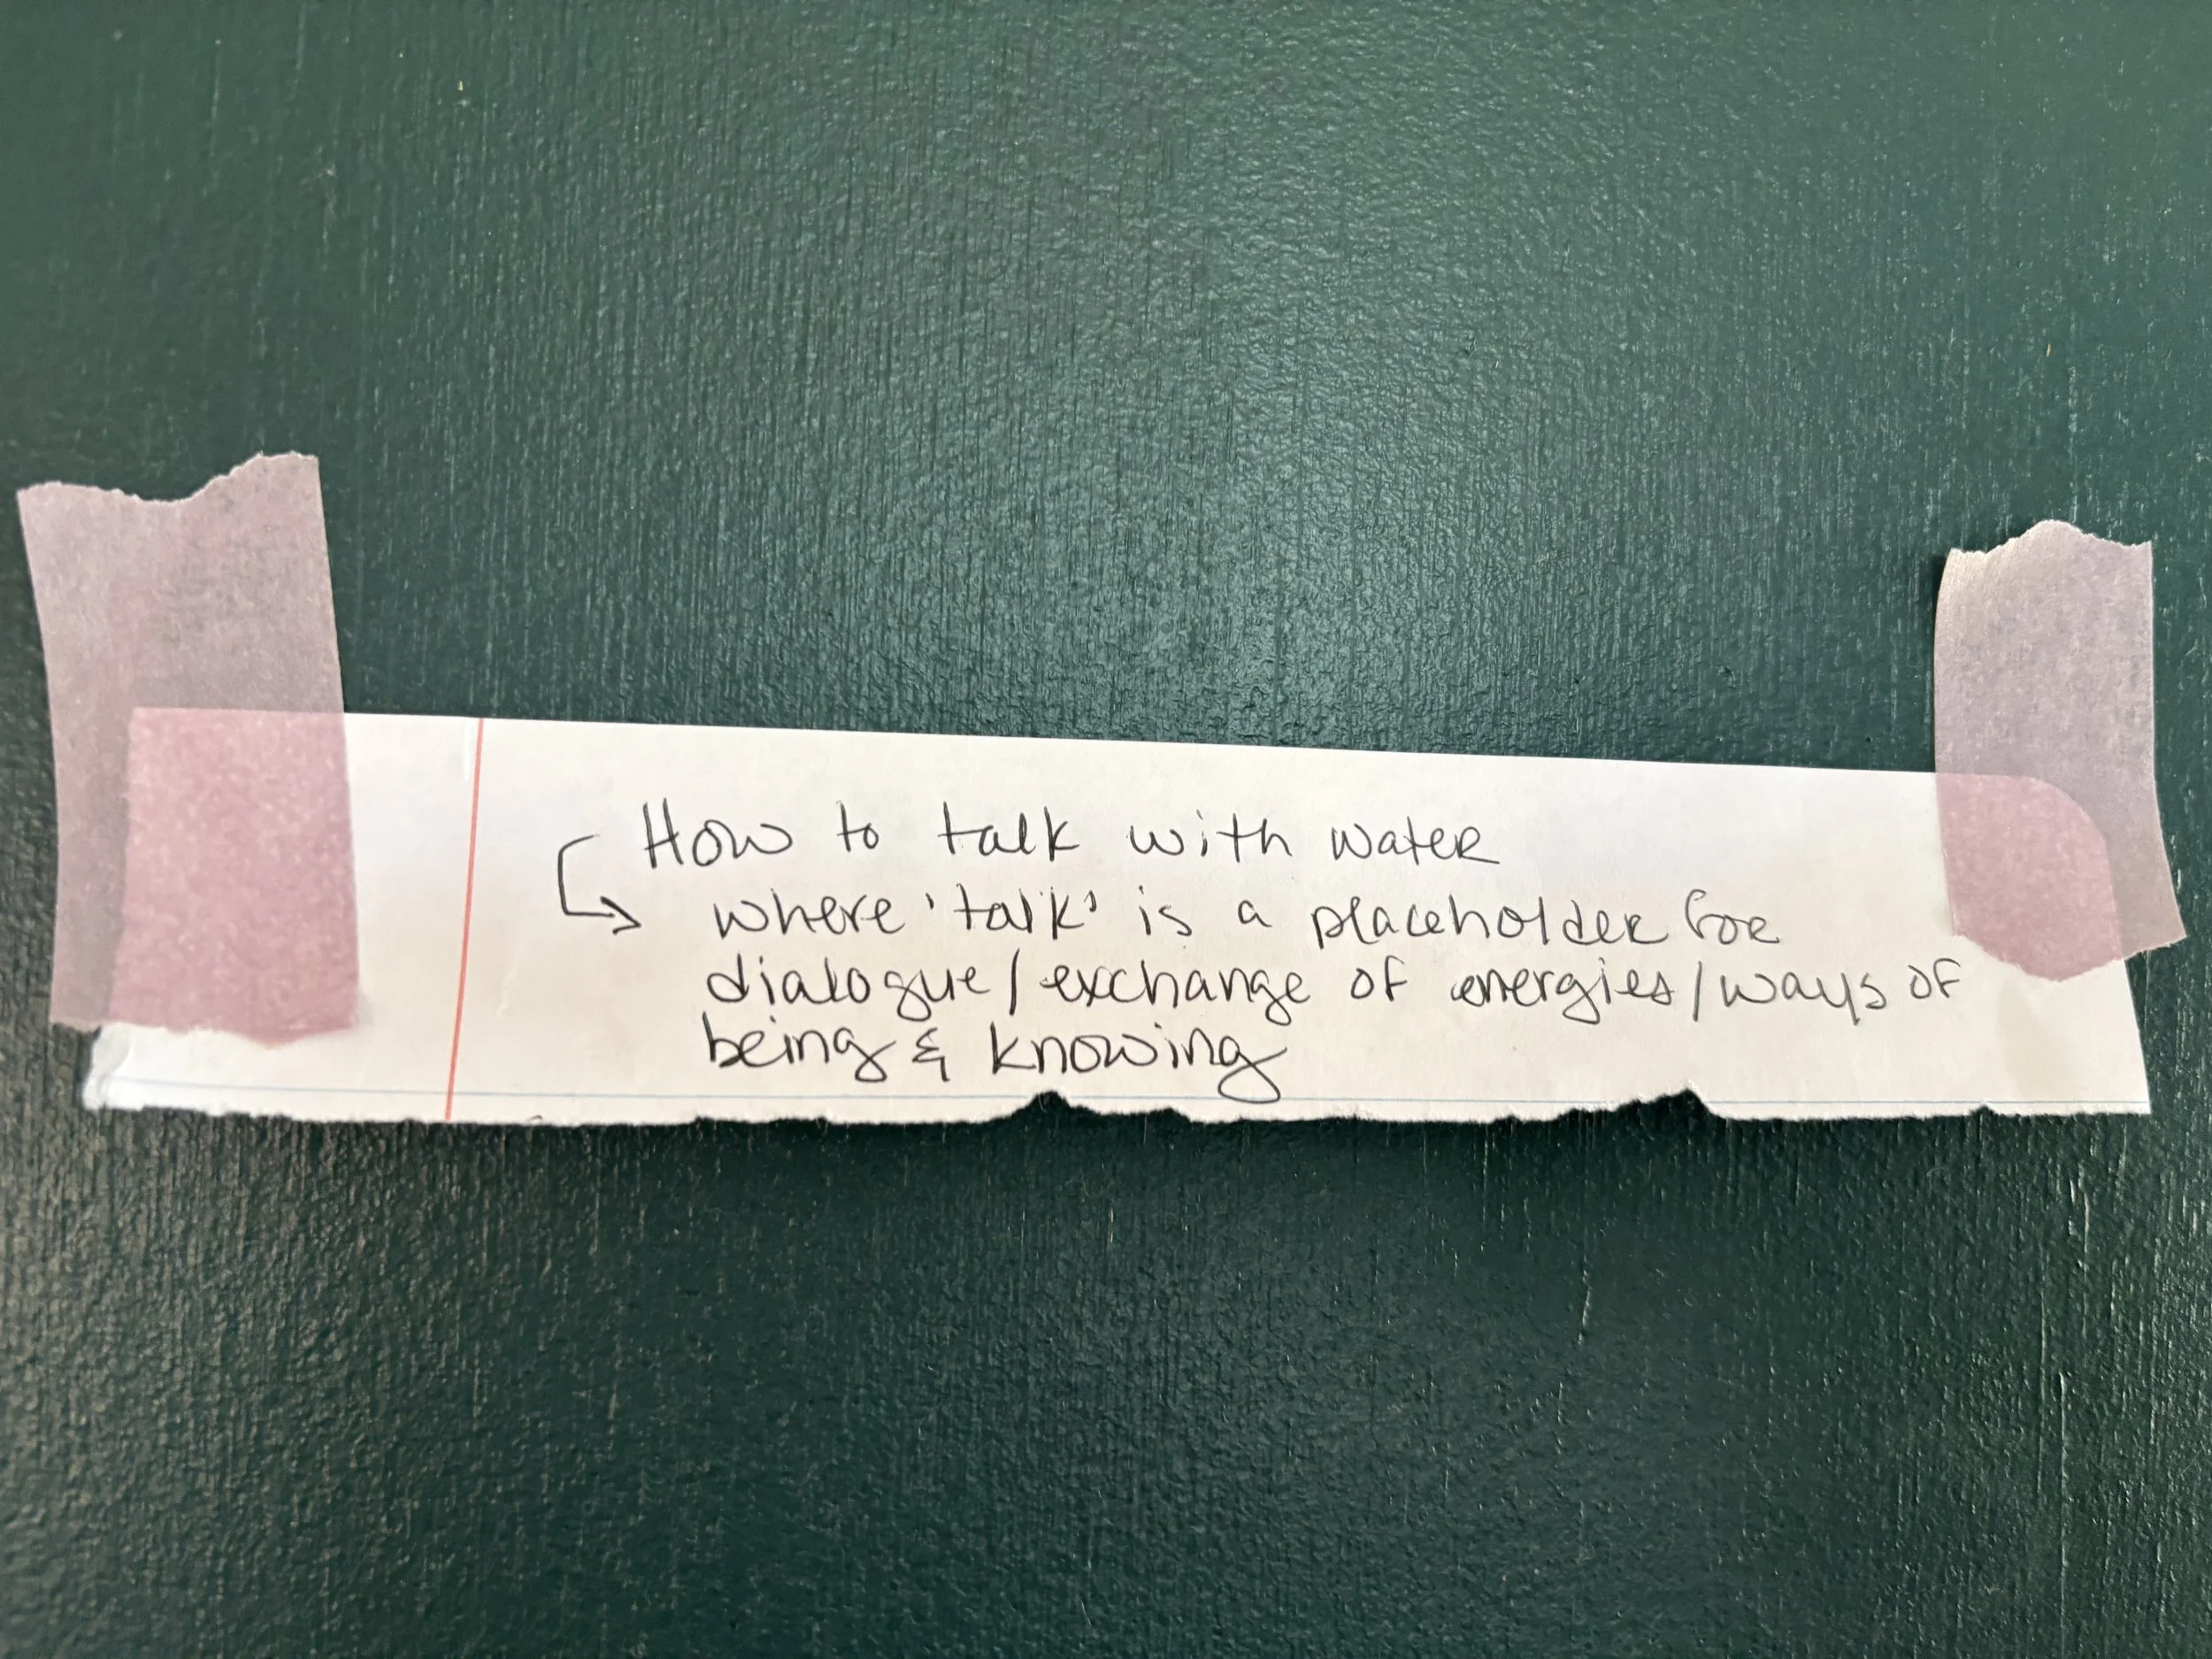 How to talk with water
where 'talk' is a placeholder for
dialogue/exchange of energies/ways of
being & knowing